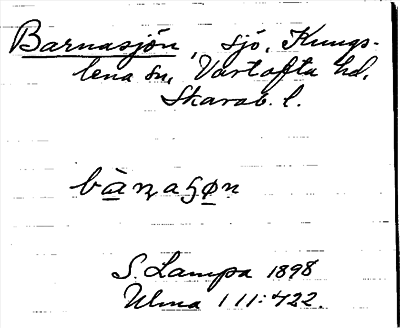 Barnasjön, sjö, Kungs-
lena sn, Vartofta hd,
Skarab. l.
bànaʂøn
S. Lampa 1898
Ulma 111:422.